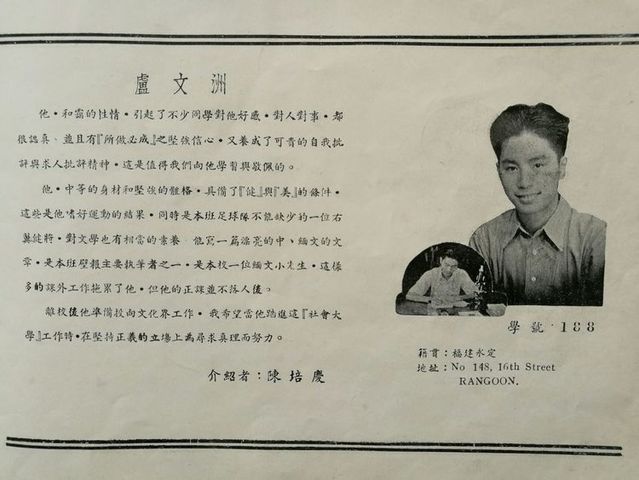 盧文洲
他・和靄的性情・引起了不少同學對他好感・對人對事・都
很認真、並且有『所做必成』之堅強信心・又養成了可貴的自我批
評與求人批評精神・這是值得我們向他學習與敬佩的。
他・中等的身材和堅強的體格・具備了『健』與『美』的條件・
這些是他嗜好運動的結果・同時是本班足球隊不能缺少的一位右
翼健將・對文學也有相當的素養・他寫一篇漂亮的中、緬文的文
章・是本班壁報主要執筆者之一・是本校一位緬文小先生・這樣
多的課外工作拖累了他・但他的正課並不落人後。
離校後他準備投向文化界工作・我希望當他踏進這『社會大
學』工作時・在堅持正義的立場上為尋求真理而努力。
介紹者：陳培慶
學號・188
籍貫：福建永定
地址：No 148, 16th Street
RANGOON.